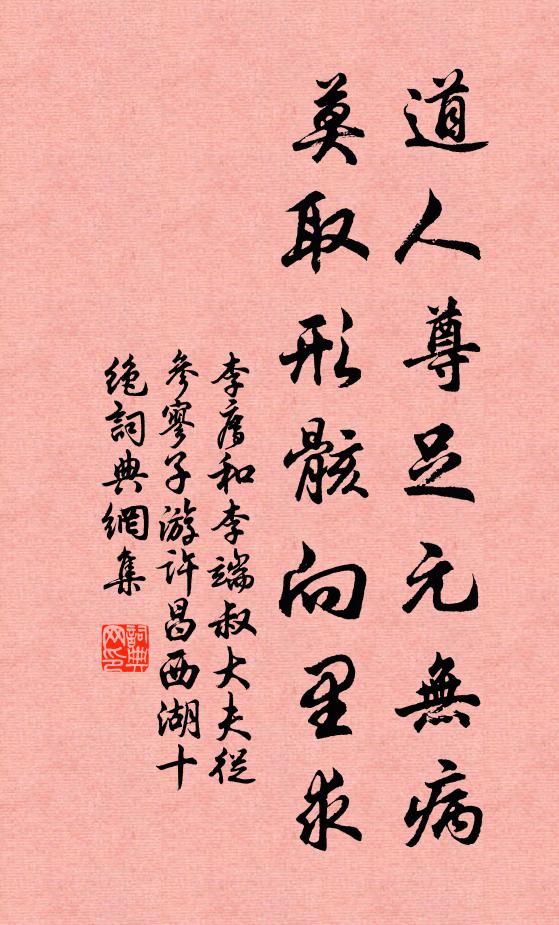 道人尊足元無病
莫取形骸向里求
李廌和李端叔大夫從
參寥子游許昌西湖十
絕詞典網集
詞典网印